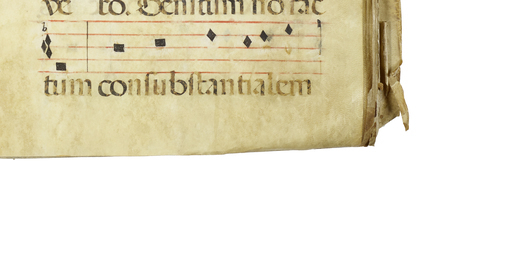 ve ro. Genitum no fac
tum consubstantialem